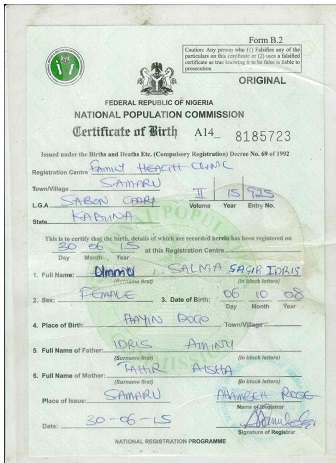 Form B.2
Caution: Any person who (1) Falsifies any of the
particulars on this certificate or (2) uses a falsified
certificate as true knowing it to be false is liable to
prosecution
ORIGINAL
FEDERAL REPUBLIC OF NIGERIA
NATIONAL POPULATION COMMISSION
Certificate of Birth A14_ 8185723
Issued under the Births and Deaths Etc. (Compulsory Registration) Decree No. 69 of 1992
Registration Centre FAMILY HEALTH CLINIC
Town/Village SAMARU
L.G.A SABON GARI II 15 925
Volume Year Entry No.
State KADUNA
This is to certify that the birth, details of which are recorded herein has been registered on
30 06 15 at this Registration Centre
Day Month Year
1. Full Name: SALMA SAGIR IDRIS
(Surname first) (In block letters)
2. Sex: FEMALE 3. Date of Birth: 06 10 08
Day Month Year
4. Place of Birth: HAYIN DOGO Town/Village
5 Full Name of Father: IDRIS AMINU
(Surname first) (In block letters)
6. Full Name of Mother: TAHIR AISHA
(Surname first) (In block letters)
Place of Issue: SAMARU ROSE
Name of Registrar
Date: 30-06-15
Signature of Registrar
NATIONAL REGISTRATION PROGRAMME